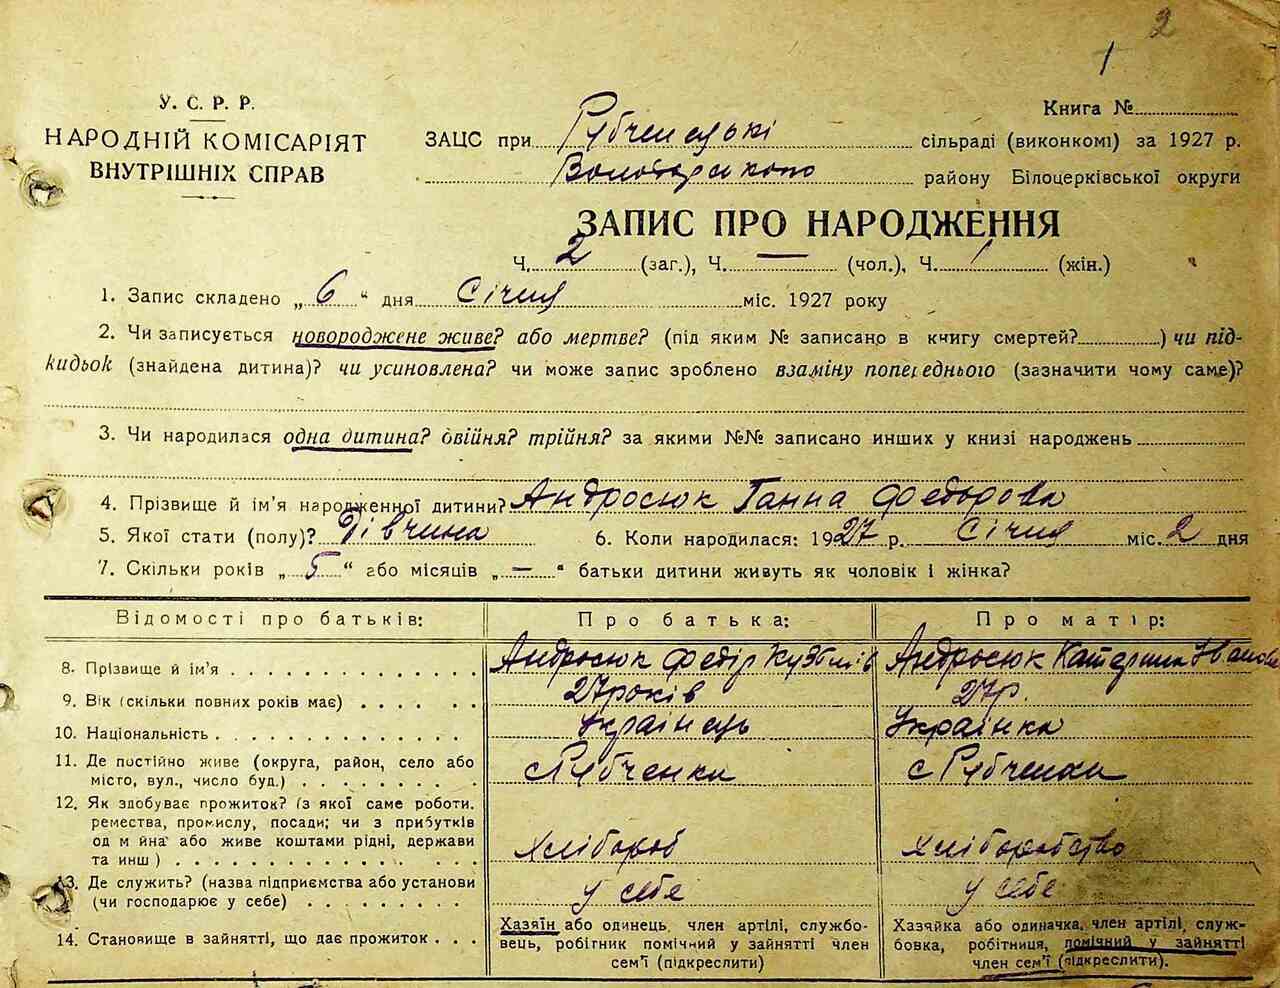 2
1
У. С. Р. Р.
НАРОДНІЙ КОМІСАРІЯТ
ВНУТРІШНІХ СПРАВ
Книга №
ЗАЦС при Рубченській сільраді (виконкомі) за 1927 р.
Володарського району Білоцерківської округи
ЗАПИС ПРО НАРОДЖЕННЯ
Ч. 2 (заг.), Ч. — (чол.), Ч. 1 (жін.)
1. Запис складено „ 6 “ дня Січня міс. 1927 року
2. Чи записується новороджене живе? або мертве? (під яким № записано в книгу смертей? ) чи під-
кидьок (знайдена дитина)? чи усиновлена? чи може запис зроблено взаміну попереднього (зазначити чому саме)?
3. Чи народилася одна дитина? двійня? трійня? за якими №№ записано инших у книзі народжень
4. Прізвище й ім'я народженної дитини? Андросюк Ганна Федорова
5. Якої стати (полу)? Дівчина 6. Коли народилася: 1927 р. Січня міс. 2 дня
7. Скільки років „ 5 “ або місяців „ — “ батьки дитини живуть як чоловік і жінка?
Відомості про батьків: Про батька: Про матір:
8. Прізвище й ім'я Андросюк Федір Кузьмів Андросюк Катерина Іванова
9. Вік (скільки повних років має) 27 років 27 р.
10. Національність Українець Українка
11. Де постійно живе (округа, район, село або
місто, вул., число буд.) с Рубченки с Рубченки
12. Як здобуває прожиток? (з якої саме роботи,
ремества, промислу, посади; чи з прибутків
од майна або живе коштами рідні, держави
та инш) Хлібороб Хліборобство
13. Де служить? (назва підприємства або установи
(чи господарює у себе) у себе у себе
14. Становище в зайнятті, що дає прожиток
Хазяїн або одинець, член артілі, службо-
вець, робітник помічний у зайнятті член
сем'ї (підкреслити)
Хазяйка або одиначка, член артілі, служ-
бовка, робітниця, помічний у зайнятті
член сем'ї (підкреслити).